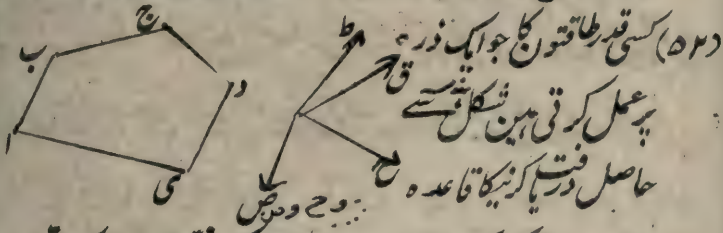 (۳۵) کسی قدر طاقتون کا جو ایک ذرہ
پر عمل کرتی ہین شکل سے
حاصل دریافت کرنیکا قاعدہ
ج
ب
د
ا
ی
ط
ق
ع